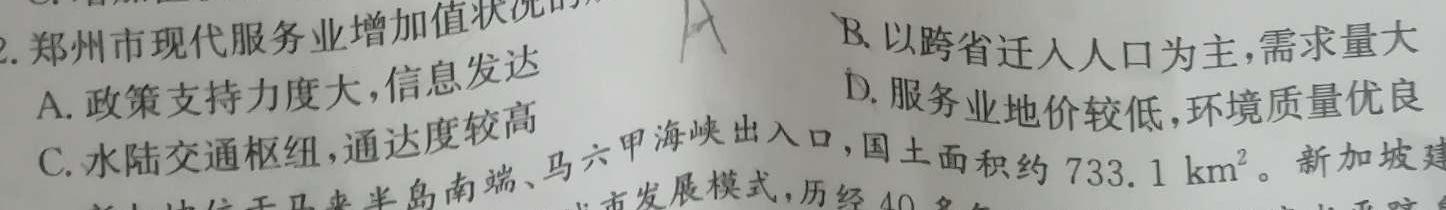 2. 郑州市现代服务业增加值状况的
A
A. 政策支持力度大,信息发达
B. 以跨省迁入人口为主,需求量大
C. 水陆交通枢纽,通达度较高
D. 服务业地价较低,环境质量优良
半岛南端、马六甲海峡出入口,国土面积约 733.1 km²。新加坡建
市发展模式,历经 40